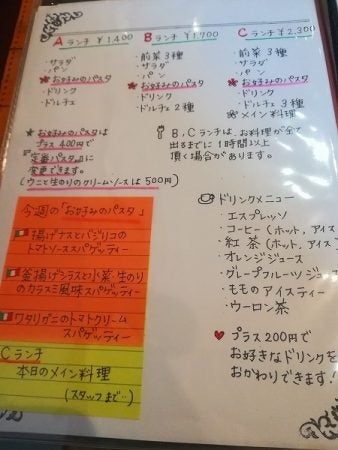 Aランチ ¥1,400
・サラダ
・パン
お好みのパスタ
・ドリンク
・ドルチェ
Bランチ ¥1,700
・前菜3種
・サラダ
・パン
お好みのパスタ
・ドリンク
・ドルチェ2種
Cランチ ¥2,300
・前菜3種
・サラダ
・パン
お好みのパスタ
・ドリンク
・ドルチェ3種
メイン料理
お好みのパスタは
プラス400円で
『定番パスタ』に
変更できます。
(ウニと生のりのクリームソースは500円)
B,Cランチは、お料理が全て
出るまでに1時間以上
頂く場合があります。
今週の「お好みのパスタ」
揚げナスとバジリコの
トマトソーススパゲッティー
釜揚げシラスと小菜、生のり
のカラスミ風味スパゲッティー
ワタリガニのトマトクリーム
スパゲッティー
Cランチ
本日のメイン料理
(スタッフまで…)
ドリンクメニュー
・エスプレッソ
・コーヒー(ホット,アイス
・紅茶(ホット,アイス)
・オレンジジュース
・グレープフルーツジュース
・もものアイスティー
・ウーロン茶
♥プラス200円で
お好きなドリンクを
おかわりできます!